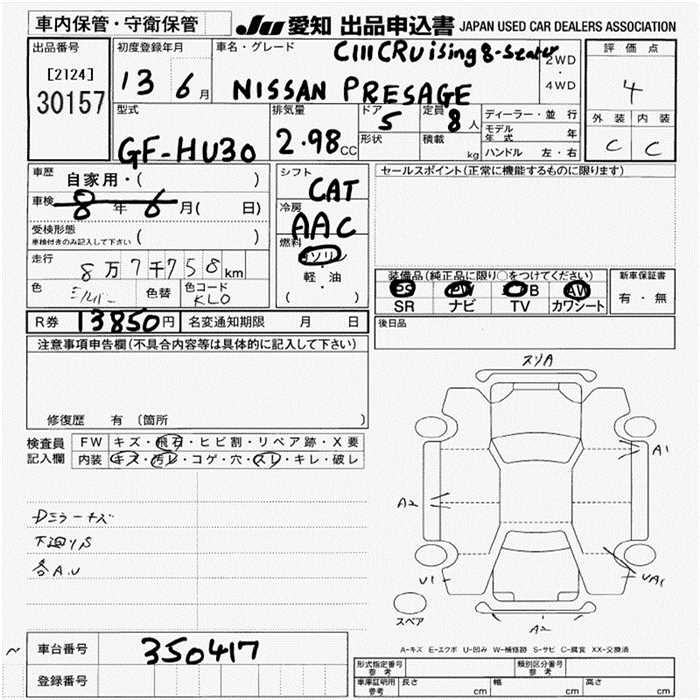 車内保管・守衛保管
JU 愛知 出品申込書 JAPAN USED CAR DEALERS ASSOCIATION
出品番号
[2124]
30157
初度登録年月
13 6月
車名・グレード
CIIICRUising 8-Seater
NISSAN PRESAGE
2WD
・
4WD
評価点
4
外装 内装
C C
型式
GF-HU30
排気量
2.98CC
ドア
5
形状
定員
8人
積載
kg
ディーラー・並行
モデル年式 年
ハンドル 左・右
車歴 自家用・( )
車検 8年6月( 日)
受検形態
車検付きのみ記入して下さい ( )
走行 8万7千758km
色 シルバー 色替 色コード KL0
シフト
CAT
冷房
AAC
燃料
ガソリン
軽・油
( )
セールスポイント(正常に機能するものに限ります)
装備品(純正品に限り○をつけてください)
PS PW AB AW
SR ナビ TV カワシート
新車保証書
有・無
R券 13850円 名変通知期限 月 日
後日品
注意事項申告欄(不具合内容等は具体的に記入して下さい)
修復歴 有 〔箇所 〕
検査員
記入欄
FW キズ・飛石・ヒビ割・リペア跡・X要
内装 キズ・汚レ・コゲ・穴・スレ・キレ・破レ
Dミラーキズ
下廻りS
各A.U
スリA
A1
A2
U1
UA1
A2
スペア
A-キズ E-エクボ U-凹み W-補修跡 S-サビ C-腐食 XX-交換済
~
車台番号 350417
登録番号
形式指定番号
参考
類別区分番号
参考
車庫証明用
参考
長さ cm 幅 cm 高さ cm